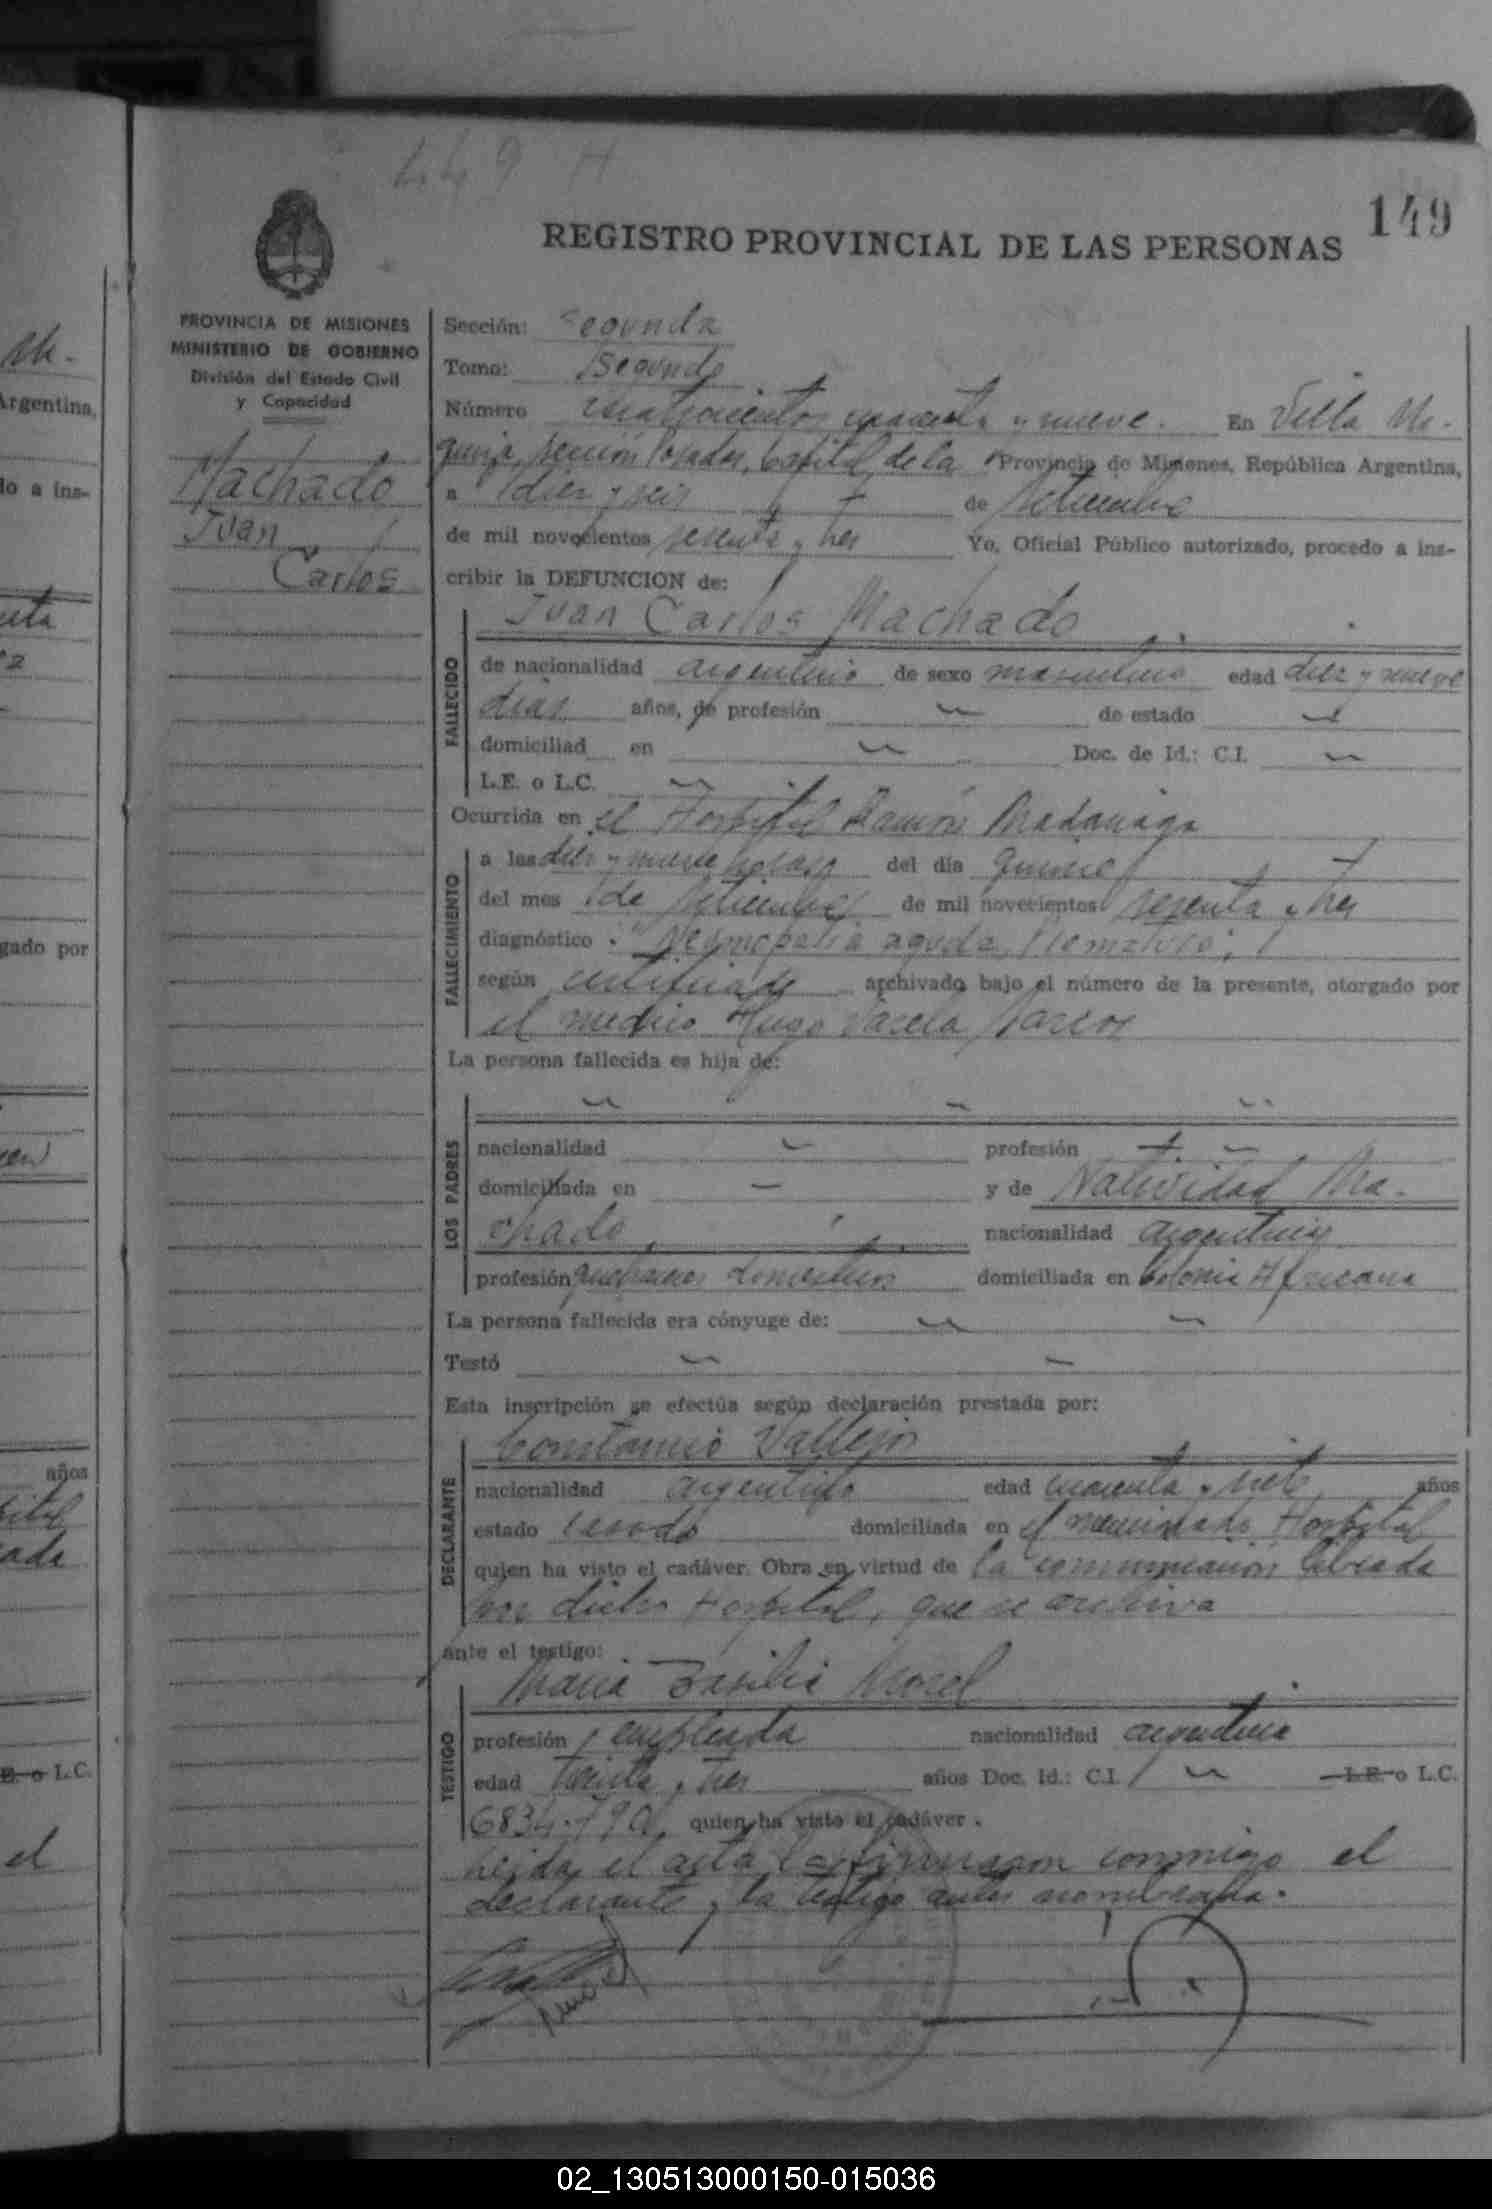 449 H
149
REGISTRO PROVINCIAL DE LAS PERSONAS
PROVINCIA DE MISIONES
MINISTERIO DE GOBIERNO
División del Estado Civil
y Capacidad
Machado
Juan
Carlos
Sección: Segunda
Tomo: Segundo
Número cuatrocientos cuarenta y nueve. En Villa Ur-
quiza, sección Posadas, Capital de la Provincia de Misiones, República Argentina,
a diez y seis de setiembre
de mil novecientos sesenta y tres Yo, Oficial Público autorizado, procedo a ins-
cribir la DEFUNCION de:
Juan Carlos Machado
FALLECIDO
de nacionalidad argentino de sexo masculino edad diez y nueve
días años, de profesión de estado
domiciliad en Doc. de Id.: C.I.
L.E. o L.C.
Ocurrida en el Hospital Ramón Madariaga
FALLECIMIENTO
a las diez y nueve horas del día quince
del mes de setiembre de mil novecientos sesenta y tres
diagnóstico : aguda, Prematuro;
según certificado archivado bajo el número de la presente, otorgado por
el médico Hugo Varela
La persona fallecida es hija de:
LOS PADRES
nacionalidad profesión
domiciliada en y de Natividad Ma-
chado, nacionalidad argentina
profesión quehaceres domésticos domiciliada en Colonia Africana
La persona fallecida era cónyuge de:
Testó
Esta inscripción se efectúa según declaración prestada por:
Constancio Vallejos
DECLARANTE
nacionalidad argentino edad cuarenta y siete años
estado casado domiciliada en el mencionado Hospital
quien ha visto el cadáver. Obra en virtud de la comunicación librada
por dicho Hospital, que se archiva
ante el testigo:
María Basilia Morel
TESTIGO
profesión empleada nacionalidad argentina
edad treinta y tres años Doc. Id.: C.I. L.E. o L.C.
6834.790 quien ha visto el cadáver.
Leída el acta, la firmaron conmigo el
declarante y la testigo antes nombrada.
Argentina,
gado por
años
L.E. o L.C.
el
02_130513000150-015036